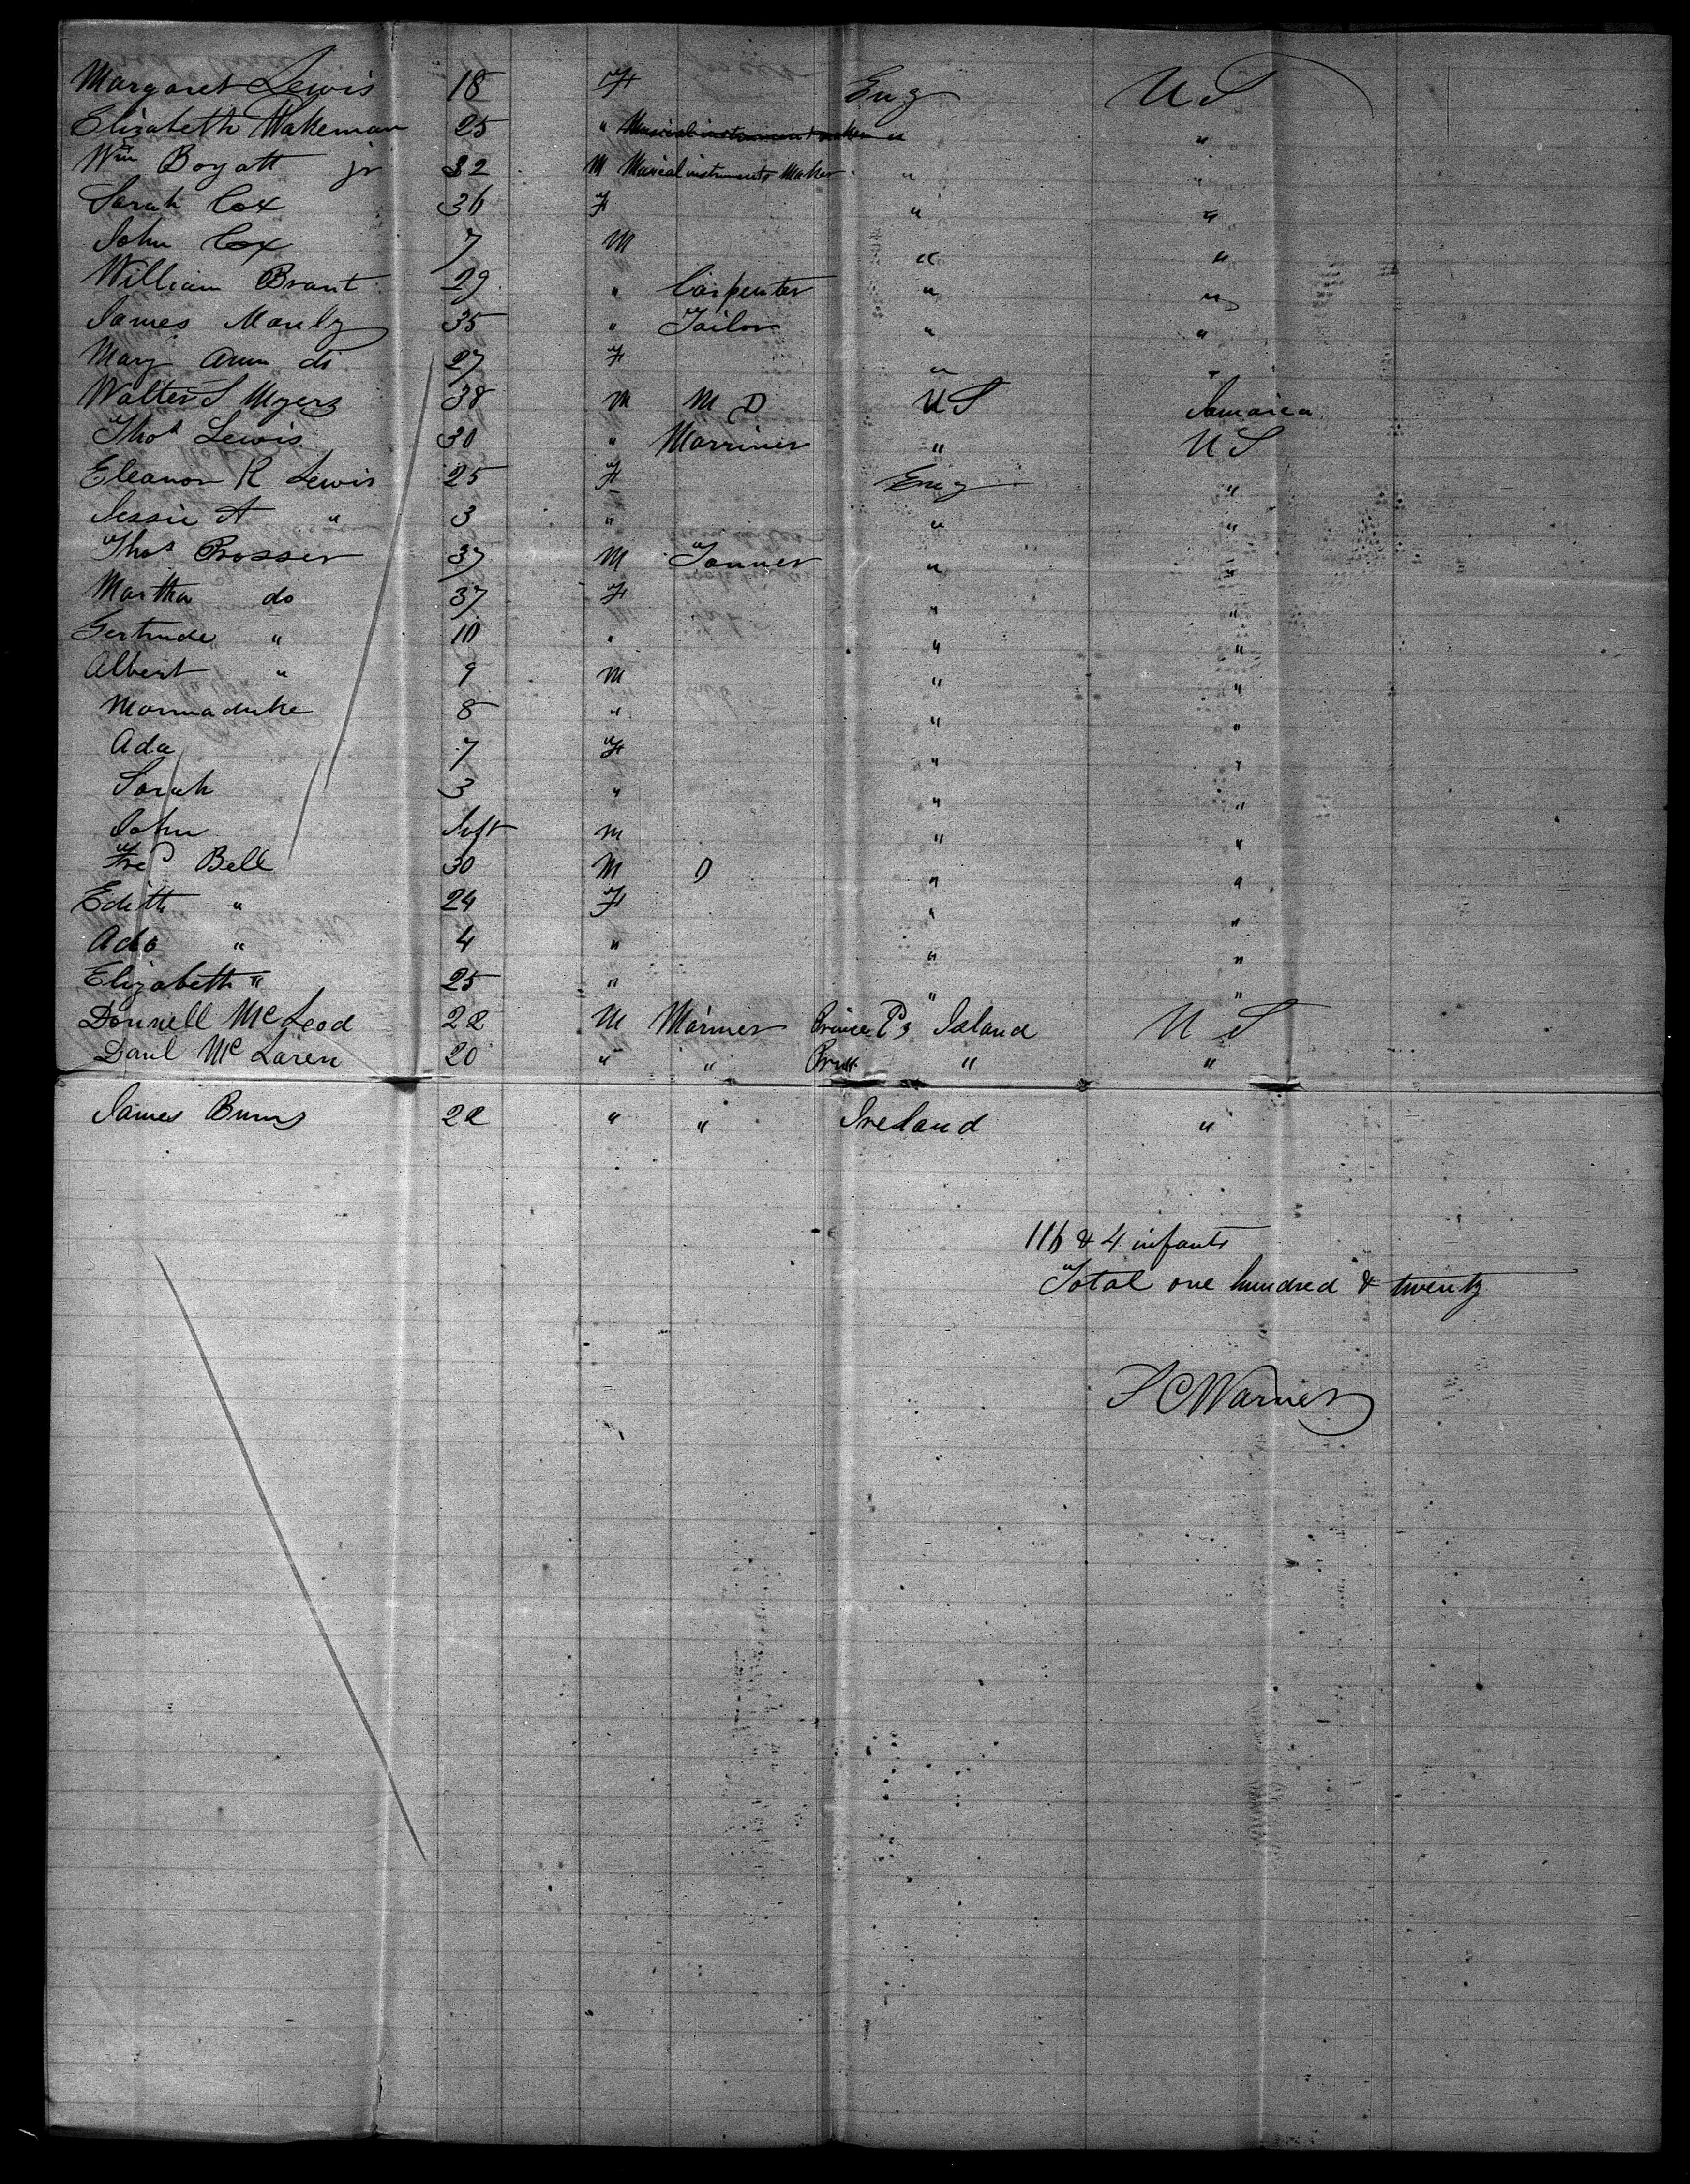 Margaret Lewis 18 F Eng U S
Elizabeth Wakeman 25 " Musical instrument maker " "
Wm Boyatt jr 32 M Musical instruments Maker " "
Sarah Cox 36 F " "
John Cox 7 M " "
William Brant 29 " Carpenter " "
James Manly 35 " Tailor " "
Mary Ann do 27 F " "
Walter S Myers 38 M M D U S Jamaica
Thos Lewis 30 " Marriner " U S
Eleanor R Lewis 25 F Eng "
Jessie A " 3 " " "
Thos Prosser 37 M Tanner " "
Martha do 37 F " "
Gertrude " 10 " " "
Albert " 9 M " "
Marmaduke 8 " " "
Ada 7 F " "
Sarah 3 " " "
John Inft M " "
Fred Bell 30 M D " "
Edith " 24 F " "
Ada " 4 " " "
Elizabeth " 25 " " "
Donnell McLeod 22 M Mariner Prince Island U S
Danl McLaren 20 " " " "
James Burns 22 " " Ireland "
116 & 4 infants
Total one hundred & twenty
Warner